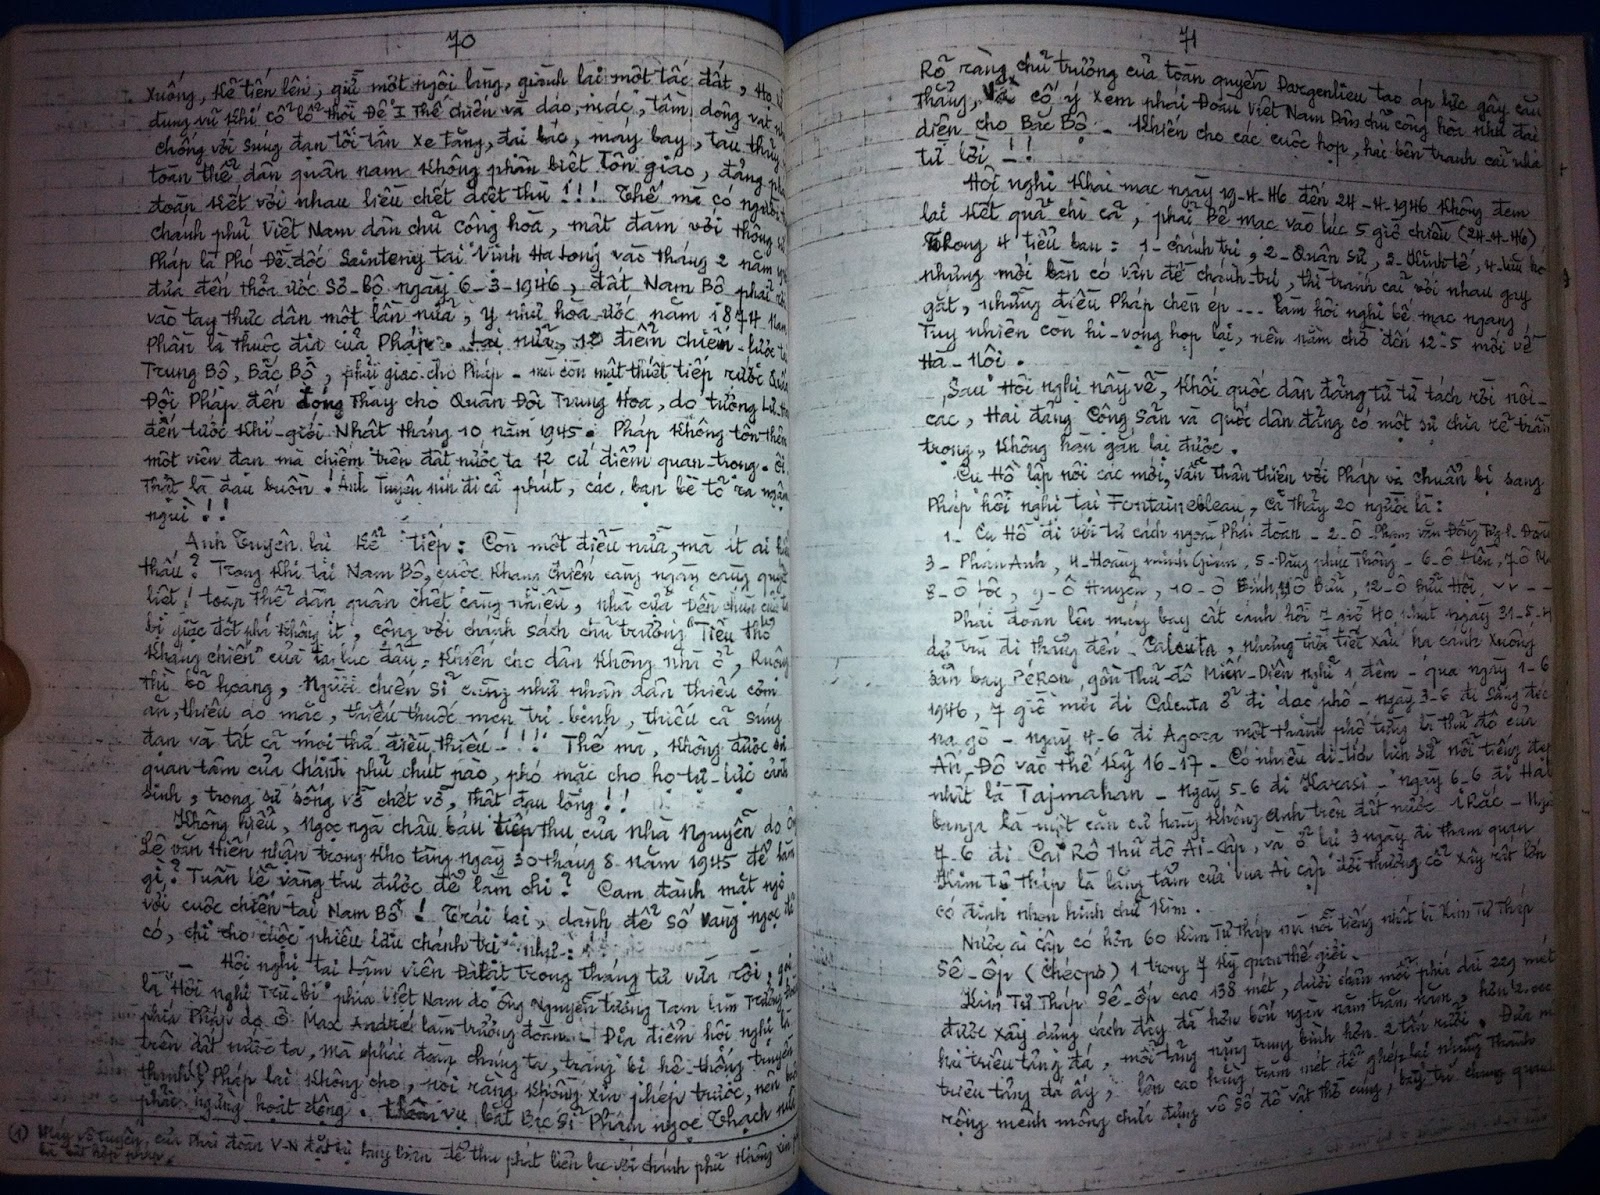 70
xuống, kẻ tiến lên, giữ một ngôi làng, giành lại một tấc đất, Họ
dụng vũ khí cổ lỗ thời Đệ I Thế chiến và dáo, mác, tầm dông vạt
chống với súng đạn tối tân xe tăng, đại bác, máy bay, tàu thủy
toàn thể dân quân nam không phân biệt Tôn giáo, đảng
đoàn kết với nhau liều chết diệt thù !!! Thế mà có người
chánh phủ Việt Nam dân chủ Cộng hòa, mật đàm với thống
Pháp là Phó Đề đốc Sainteny tại Vịnh Hạ Long vào tháng 2 năm
đưa đến thỏa ước Sơ-Bộ ngày 6-3-1946, đất Nam Bộ phải
vào tay thực dân một lần nữa, y như hòa ước năm 1874 Nam
Phần là thuộc địa của Pháp. Lại nữa, 12 điểm chiến-lược
Trung Bộ, Bắc Bộ, phải giao cho Pháp - mà còn mật thiết tiếp rước
Đội Pháp đến đóng Thay cho Quân Đội Trung Hoa, do tướng Lư
đến tước Khí-giới Nhật tháng 10 năm 1945. Pháp không tốn thêm
một viên đạn mà chiếm trên đất nước ta 12 cứ điểm quan-trọng. Ôi
Thật là đau buồn ! Anh Tuyên nín đi cả phút, các bạn bè tỏ ra
ngùi !!
Anh Tuyên lại kể tiếp : Còn một điều nữa, mà ít ai
thấu ? Trong khi tại Nam Bộ, cuộc kháng chiến càng ngày càng quyết
liệt, toàn thể dân quân chết càng nhiều, nhà cửa Đền chùa
bị giặc đốt phá không ít, cộng với chánh sách chủ trương "Tiêu thổ
Kháng chiến" của ta lúc đầu, khiến cho dân không nhà ở, Ruộng
thì bỏ hoang, Người chiến sĩ cũng như nhân dân thiếu cơm
ăn, thiếu áo mặc, thiếu thuốc men trị bệnh, thiếu cả súng
đạn và tất cả mọi thứ điều thiếu - !!! Thế mà, không được sự
quan tâm của Chánh phủ chút nào, phó mặc cho họ tự-lực cánh
sinh, trong sự sống vỡ chết vỡ, thật đau lòng !!
Không hiểu, Ngọc ngà châu báu tiếp thu của nhà Nguyễn do
Lê văn Hiến nhận trong kho tàng ngày 30 tháng 8 năm 1945 để làm
gì ? Tuần lễ vàng thu được để làm chi ? Cam đành mặt
với cuộc chiến tại Nam Bộ ! Trái lại, dành để số vàng ngọc
có, chi cho cuộc phiêu lưu chánh trị như :
- Hội nghị tại Lâm viên Đà lạt trong tháng tư vừa rồi,
là "Hội nghị Trù-bị" phía Việt Nam do ông Nguyễn tường Tam làm Trưởng
phía Pháp do Ô. Max André làm trưởng đoàn. Địa điểm hội nghị là
trên đất nước ta, mà phái đoàn chúng ta, trang bị hệ-thống truyền
thanh (1) Pháp lại không cho, nói rằng không xin phép trước, nên
phải ngừng hoạt động. thêm vụ bắt Bác Sĩ Phạm ngọc Thạch
(1) Máy vô tuyến, của Phái đoàn V-N để thu phát liên lạc với chánh phủ không xin
là bất hợp pháp.
71
Rõ ràng chủ trương của toàn quyền Dargenlieu tạo áp lực gây căn
thẳng, Và cố ý xem phái Đoàn Việt Nam Dân chủ cộng hòa như đại
diện cho Bắc Bộ - khiến cho các cuộc họp, hai bên tranh cãi nhau
từ lời !!
Hội nghị Khai mạc ngày 19-4-46 đến 24-4-1946 Không đem
lại kết quả chi cả, phải Bế mạc vào lúc 5 giờ chiều (24-4-46)
Trong 4 tiểu ban : 1- chánh trị, 2- Quân sự, 3- Kinh tế, 4-
nhưng mỗi bàn có vấn đề chánh-trị, thì tranh cãi với nhau gay
gắt, những điều Pháp chèn ép ... làm hội nghị bế mạc ngang
Tuy nhiên còn hi-vọng họp lại, nên nằm chờ đến 12-5 mới về
Hà-Nội.
Sau Hội nghị nầy về, Khối quốc dân đảng từ từ tách rời nội-
các, Hai đảng Cộng Sản và quốc dân đảng có một sự chia rẽ trầm
trọng, không hàn gắn lại được.
Cụ Hồ lập nội các mới, vẫn thân thiện với Pháp và chuẩn bị sang
Pháp hội nghị tại Fontainebleau, cả thảy 20 người là :
1- Cụ Hồ đi với tư cách ngoài Phái đoàn - 2- Ô. Phạm văn Đồng
3- Phan Anh, 4- Hoàng minh Giám, 5- Đặng phúc Thông - 6- Ô Hiền, 7 Ô
8- Ô Lộc, 9- Ô Huyên, 10- Ô Bình, 11 Ô Bửu, 12- Ô Bửu Hội, v v - -
Phái đoàn lên máy bay cất cánh hồi 7 giờ 40 phút ngày 31-5-
dự trù đi thẳng đến Calcuta, nhưng trời tiết xấu hạ cánh xuống
sân bay PéRon, gần Thủ-đô Miến-Diện nghỉ 1 đêm - qua ngày 1-6
1946, 7 giờ mới đi Calcuta ở đi dạo phố - ngày 3-6 đi
na gò - ngày 4-6 đi Agora một thành phố từng là thủ đô của
Ấn-Độ vào thế kỷ 16-17 - Có nhiều di-tích lịch sử nổi tiếng
nhất là Tajmahan - ngày 5-6 đi Karasi - ngày 6-6 đi Hai
banja là một căn cứ hàng không Anh trên đất nước iRắc -
7-6 đi Cai Rô thủ đô Ai-Cập, và ở lại 3 ngày đi tham quan
Kim tự tháp là lăng tẩm của vua Ai cập đời thượng cổ xây rất lớn
có đỉnh nhọn hình chữ Kim.
Nước ai cập có hơn 60 Kim Tự Tháp mà nổi tiếng nhất là Kim Tự Tháp
Sê-ốp (Chéops) 1 trong 7 kỳ quan thế giới.
Kim Tự Tháp Sê-ốp cao 138 mét, dưới chân mỗi phía dài 229 mét
được xây dựng cách đây đã hơn bốn ngàn năm trăm năm,
hai triệu tảng đá, mỗi tảng nặng trung bình hơn 2 tấn rưỡi. Đưa
triệu tảng đá ấy, lên cao hàng trăm mét để ghép lại những Thành
rộng mênh mông chứa đựng vô số đồ vật thờ cúng,